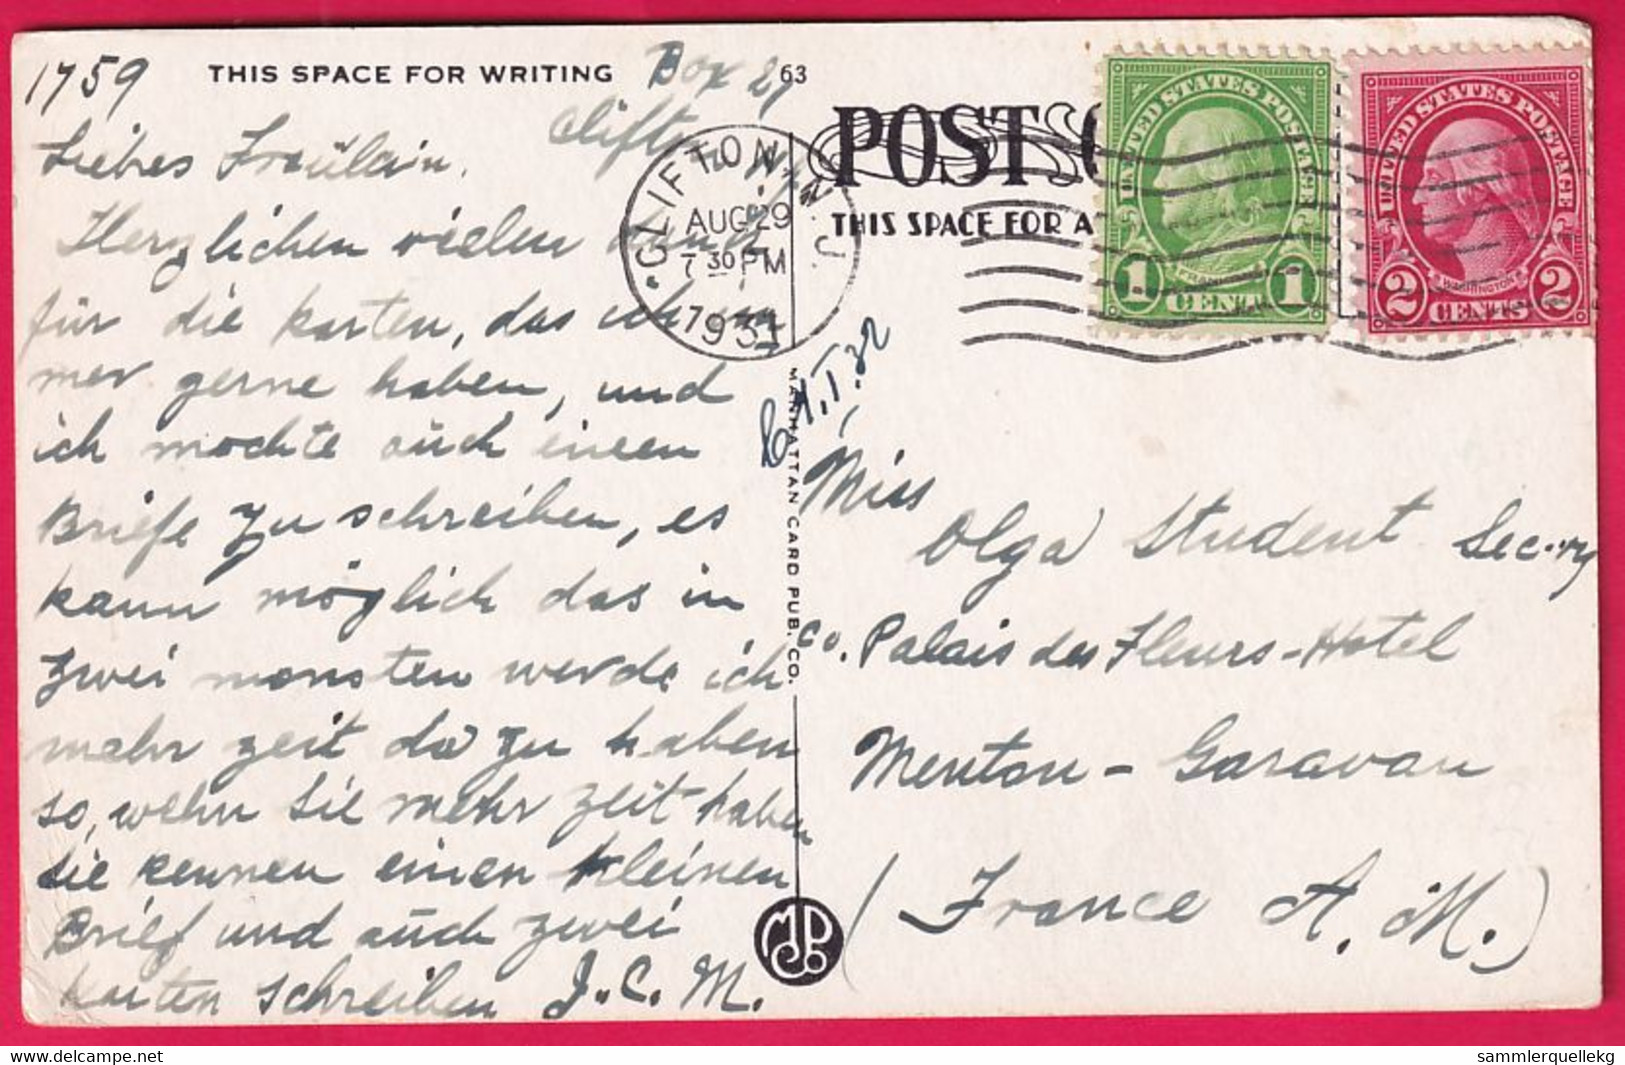 1759
THIS SPACE FOR WRITING
Box 27
63
Clifton N.J.
CLIFTON N.J.
AUG 29
7 30 PM
1931
POST C
THIS SPACE FOR A
UNITED STATES POSTAGE
FRANKLIN
1 CENT 1
UNITED STATES POSTAGE
WASHINGTON
2 CENTS 2
Liebes Fraülein.
Herzlichen vielen dank
für die karten, das ich im
mer gerne haben, und
ich mochte auch einen
Briefe zu schreiben, es
kann möglich das in
zwei monaten werde ich
mehr zeit da zu haben
so, wehn sie mehr zeit haben
sie kennen einen kleinen
Brief und auch zwei
karten schreiben J.C.M.
MANHATTAN CARD PUB. CO.
Miss
Olga Student Sec..ry
co. Palais des Fleurs-Hotel
Menton - Garavan
(France A.M.)
© The-stamps on Delcampe.net
sammlerquellekg